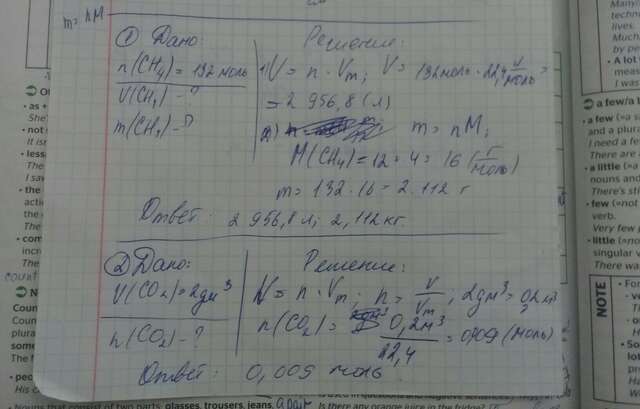 m = nM
① Дано:
Решение:
n(CH4) = 132 моль
1) V = n · Vm; V = 132 моль · 22,4 л/моль =
V(CH4) - ?
= 2 956,8 (л)
m(CH4) - ?
2) m = nM;
M(CH4) = 12 + 4 = 16 (г/моль)
m = 132 · 16 = 2 112 г
Ответ: 2 956,8 л; 2,112 кг.
② Дано:
Решение:
V(CO2) = 2дм³
V = n · Vm; n = V/Vm; 2дм³ = 0,2 м³
n(CO2) - ?
n(CO2) = 0,2м³/22,4 = 0,009 (моль)
Ответ: 0,009 моль
• as +
She'
• not
It is
• less
The
I sav
• the
acti
the
The
• com
incre
The
count
Coun
Coun
plura
some
The
• peo
His c
• Nouns that consist of two parts: glasses, trousers, jeans,
a pair
Is there any orange juice in the fridge?
Many
techn
lives.
Much
by pe
• A lot
meas
I was
a few/a
• a few (=a s
and a plura
I need a fe
There are
• a little (=a
nouns and
There's
• few (=not
verb.
Very few p
• little (=no
singular v
There wa
NOTE
• For
• W
• So